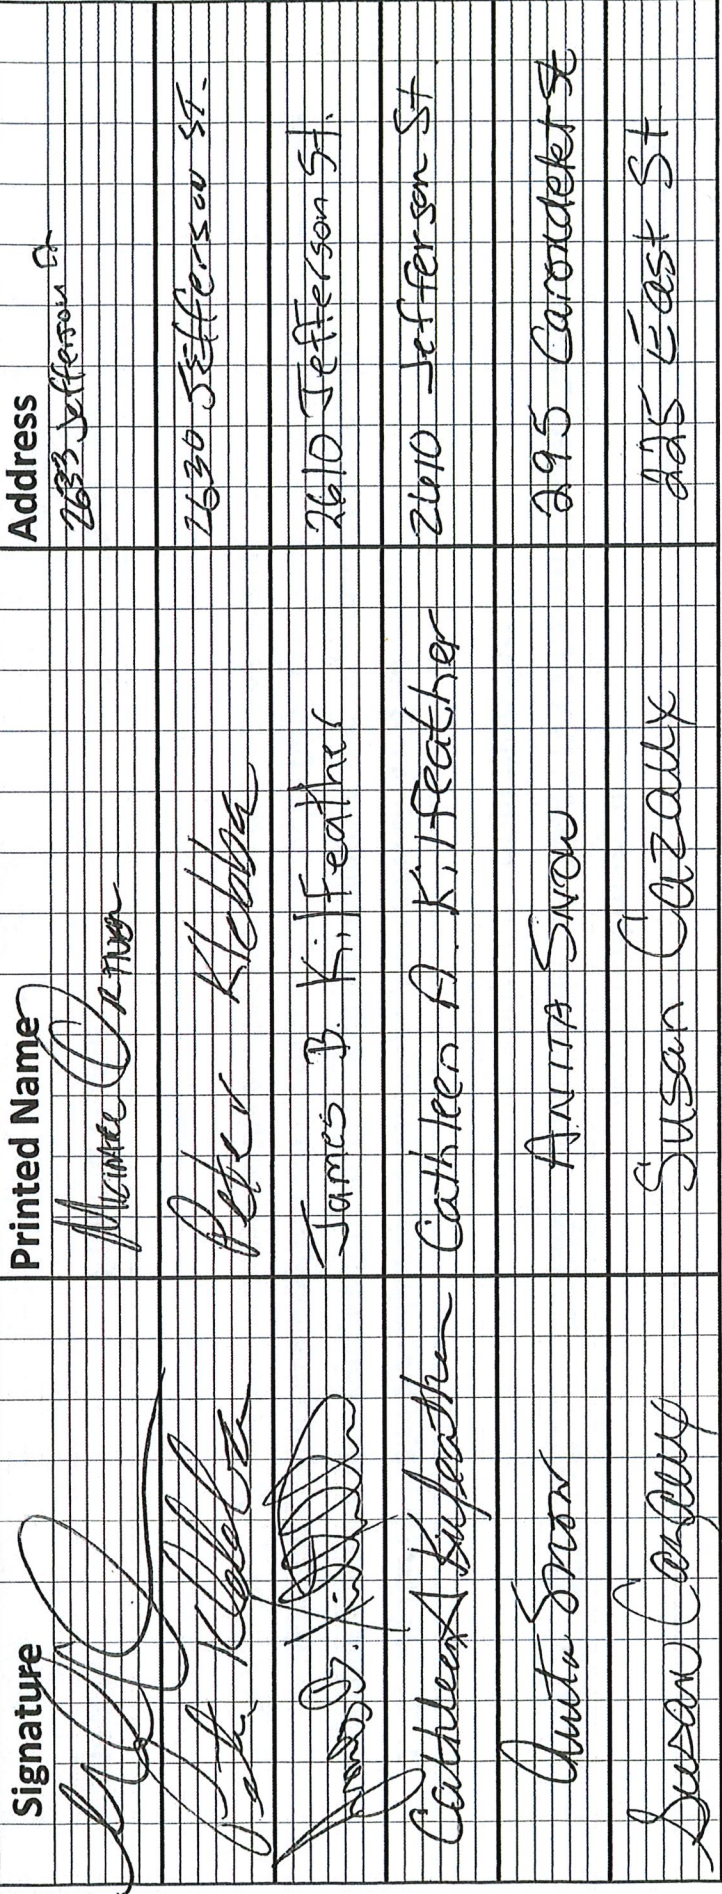 Signature Printed Name Address
Michael 2633 Jefferson
Peter Klebba Peter Klebba 2630 Jefferson St.
James B. Kilfeather 2610 Jefferson St.
Cathleen A Kilfeather Cathleen A. Kilfeather 2610 Jefferson St.
Anita Snow Anita Snow 295 Carondelet St
Susan Cazaux Susan Cazaux 225 East St